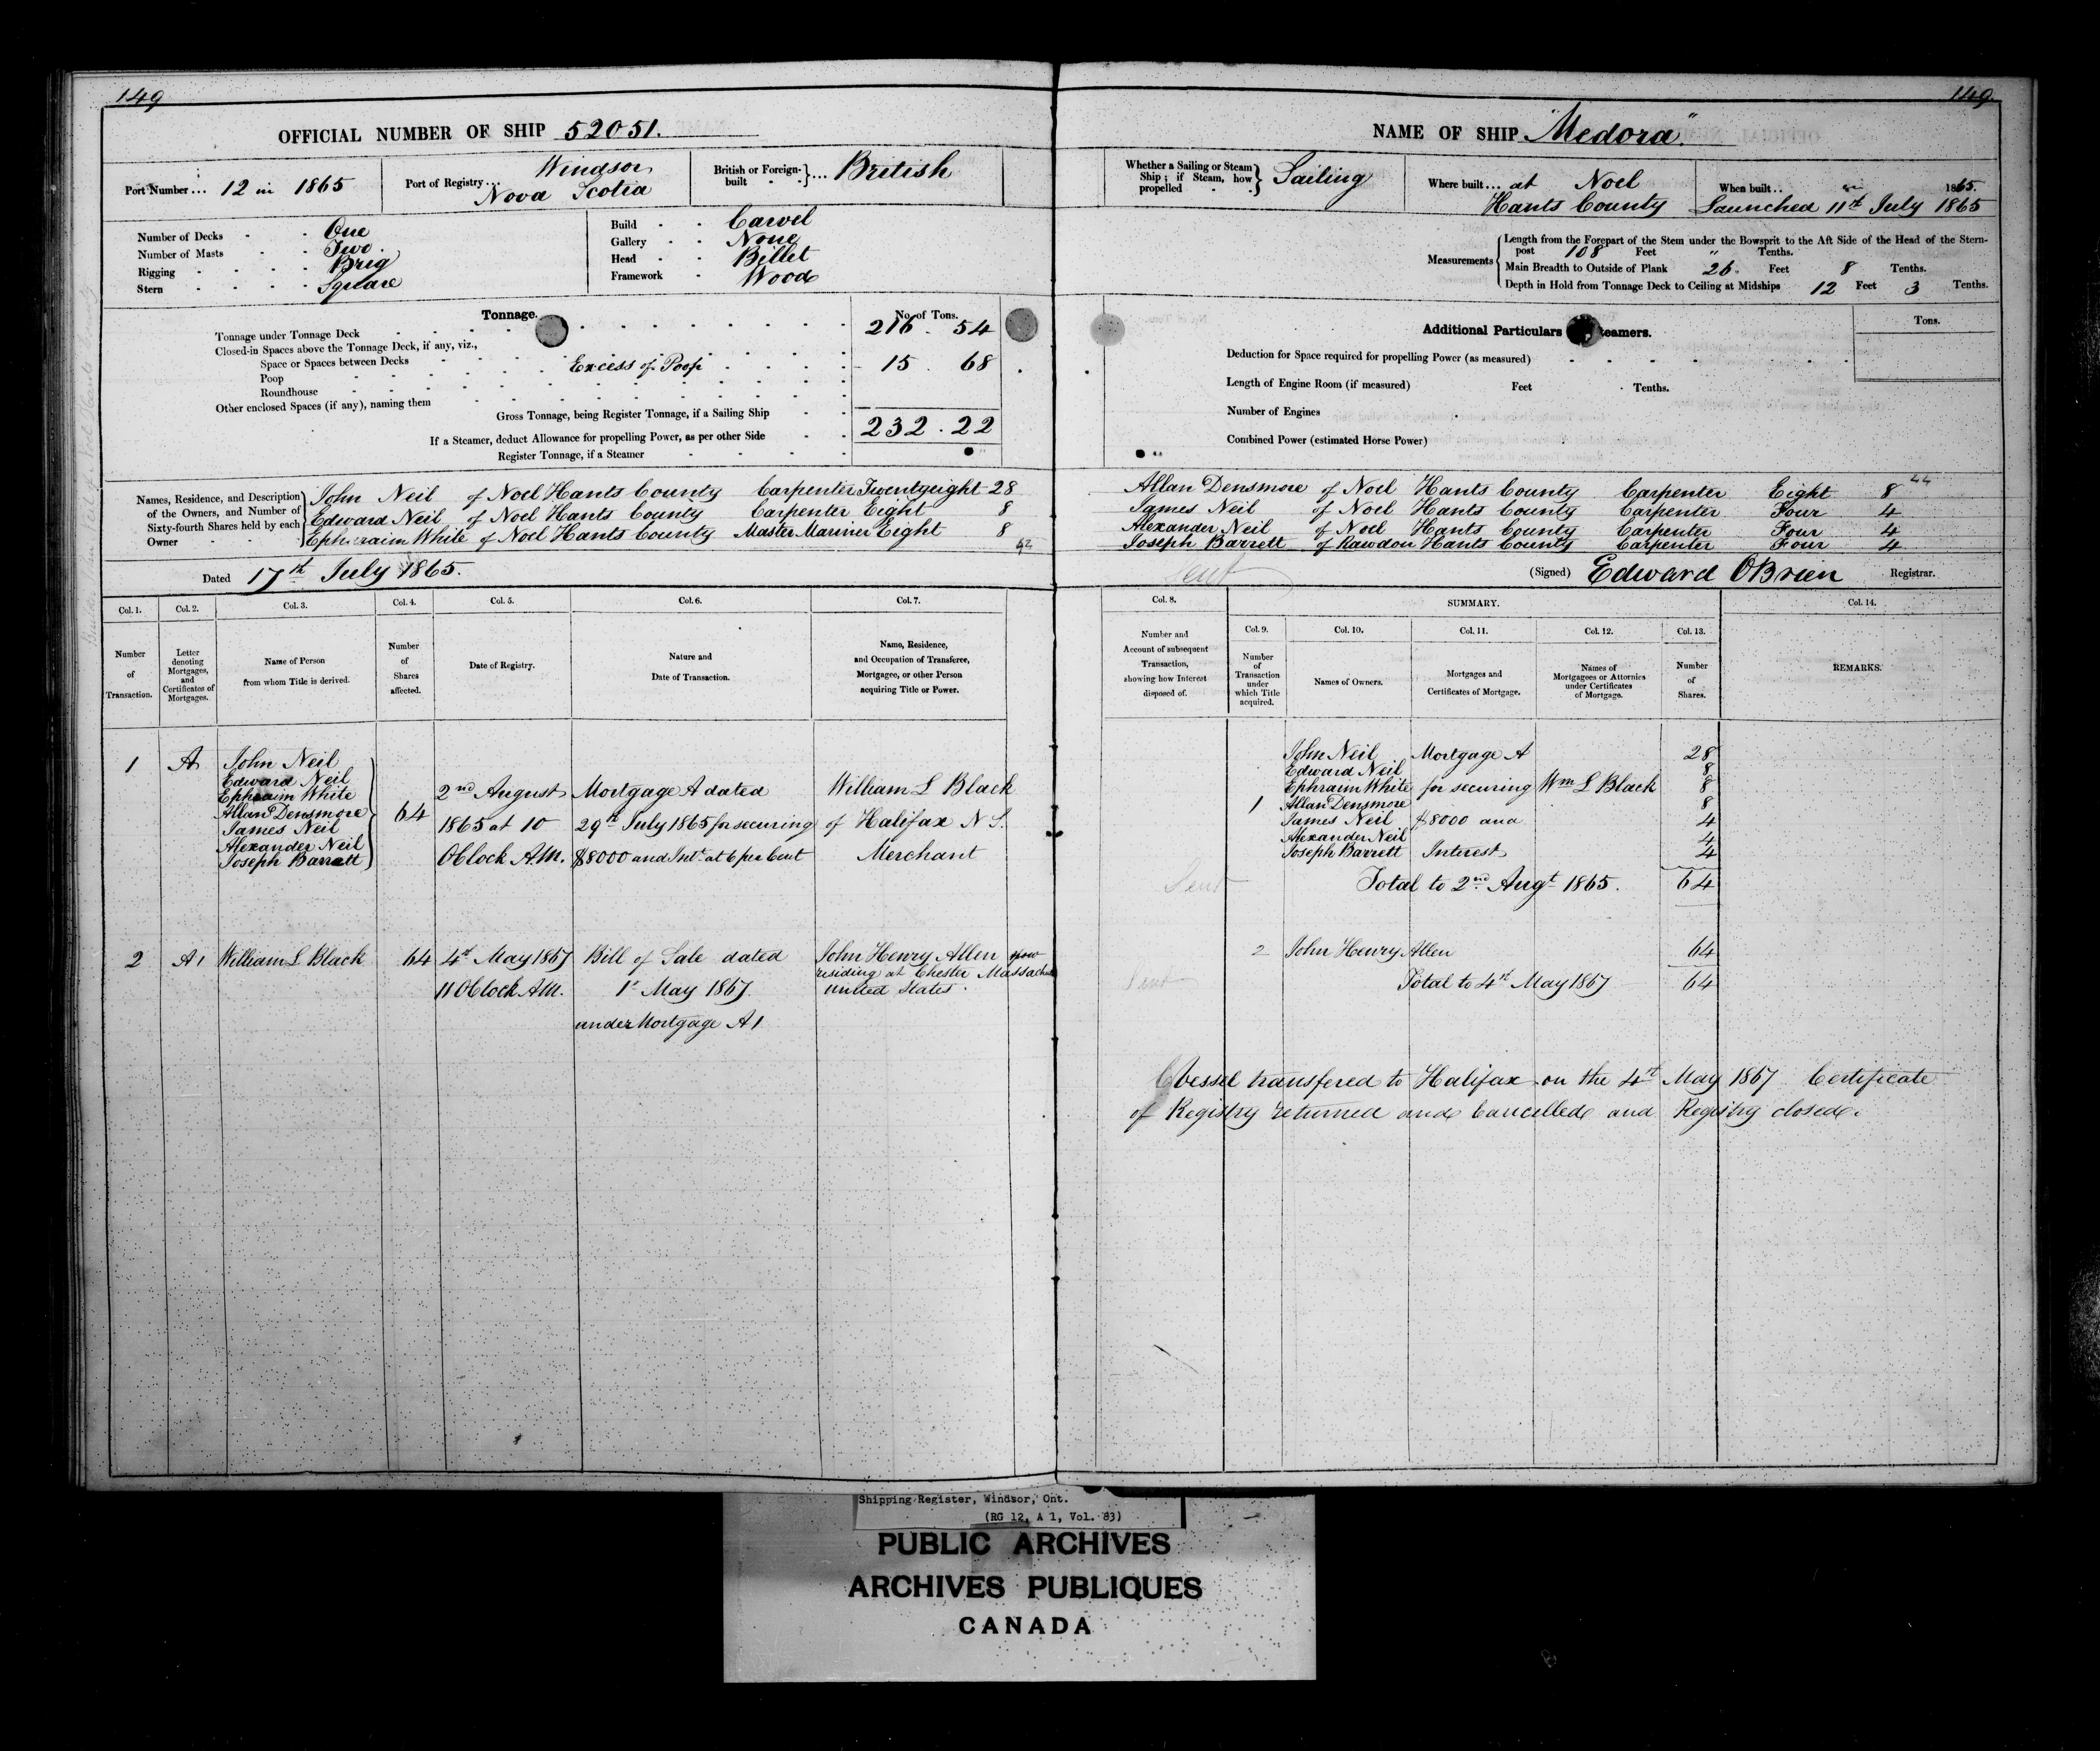 149
OFFICIAL NUMBER OF SHIP 52051.
Port Number ... 12 in 1865
Port of Registry ... Windsor
Nova Scotia
British or Foreign-built } ... British
Number of Decks One
Number of Masts Two.
Rigging Brig
Stern Square
Build Carvel
Gallery None
Head Billet
Framework Wood
Tonnage. No. of Tons.
Tonnage under Tonnage Deck 216 . 54
Closed-in Spaces above the Tonnage Deck, if any, viz.,
Space or Spaces between Decks Excess of Poop 15 . 68
Poop
Roundhouse
Other enclosed Spaces (if any), naming them
Gross Tonnage, being Register Tonnage, if a Sailing Ship 232 . 22
If a Steamer, deduct Allowance for propelling Power, as per other Side
Register Tonnage, if a Steamer
Names, Residence, and Description of the Owners, and Number of Sixty-fourth Shares held by each Owner
John Neil of Noel Hants County Carpenter Twentyeight 28
Edward Neil of Noel Hants County Carpenter Eight 8
Ephraim White of Noel Hants County Master Mariner Eight 8
Dated 17th July 1865.
Col. 1. Col. 2. Col. 3. Col. 4. Col. 5. Col. 6. Col. 7.
Number of Transaction.
Letter denoting Mortgages, and Certificates of Mortgages.
Name of Person from whom Title is derived.
Number of Shares affected.
Date of Registry.
Nature and Date of Transaction.
Name, Residence, and Occupation of Transferee, Mortgagee, or other Person acquiring Title or Power.
1 A John Neil
Edward Neil
Ephraim White
Allan Densmore
James Neil
Alexander Neil
Joseph Barrett
64
2nd August
1865 at 10
OClock A.M.
Mortgage A dated
29th July 1865 for securing
$8000 and Intt at 6 per Cent
William L Black
of Halifax N S.
Merchant
2 A1 William L Black 64
4th May 1867
11 OClock AM.
Bill of Sale dated
1st May 1867
under Mortgage A 1
John Henry Allen now
residing at Chester Massach
United States.
149.
NAME OF SHIP "Medora".
Whether a Sailing or Steam Ship; if Steam, how propelled } Sailing
Where built ... at Noel
Hants County
When built .. in 1865.
Launched 11th July 1865
Measurements
Length from the Forepart of the Stem under the Bowsprit to the Aft Side of the Head of the Stern-
post 108 Feet " Tenths.
Main Breadth to Outside of Plank 26. Feet 8 Tenths.
Depth in Hold from Tonnage Deck to Ceiling at Midships 12 Feet 3 Tenths.
Additional Particulars teamers. Tons.
Deduction for Space required for propelling Power (as measured)
Length of Engine Room (if measured) Feet Tenths.
Number of Engines
Combined Power (estimated Horse Power)
44
Allan Densmore of Noel Hants County Carpenter Eight 8
James Neil of Noel Hants County Carpenter Four 4
Alexander Neil of Noel Hants County Carpenter Four 4
Joseph Barrett of Rawdon Hants County Carpenter Four 4
Sent
(Signed) Edward OBrien Registrar.
Col. 8. SUMMARY. Col. 14.
Col. 9. Col. 10. Col. 11. Col. 12. Col. 13.
Number and Account of subsequent Transaction, showing how Interest disposed of.
Number of Transaction under which Title acquired.
Names of Owners.
Mortgages and Certificates of Mortgage.
Names of Mortgagees or Attornies under Certificates of Mortgage.
Number of Shares.
REMARKS.
1
John Neil 28
Edward Neil 8
Ephraim White 8
Allan Densmore 8
James Neil 4
Alexander Neil 4
Joseph Barrett 4
Mortgage A
for securing
$8000 and
Interest
Wm L Black
Sent
Total to 2nd Augt 1865. 64
2 John Henry Allen 64
Sent
Total to 4th May 1867 64
Vessel transfered to Halifax on the 4th May 1867 Certificate
of Registry returned and Cancelled and Registry closed.
Shipping Register, Windsor, Ont.
(RG 12, A 1, Vol. 83)
PUBLIC ARCHIVES
ARCHIVES PUBLIQUES
CANADA